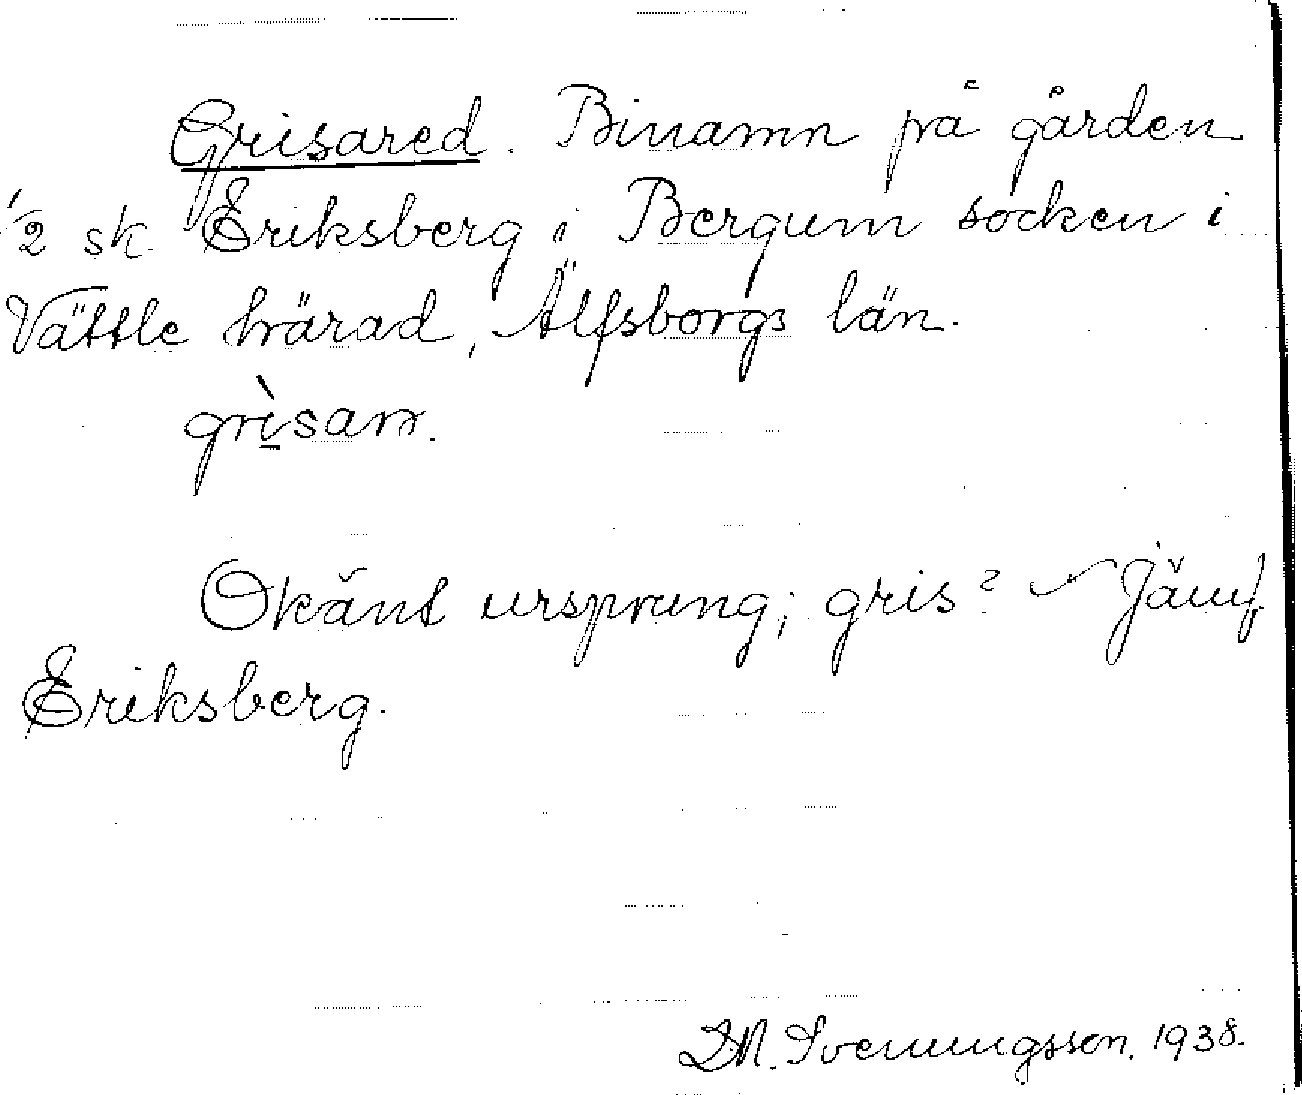 Grisared. Binamn på gården
1/2 sk. Eriksberg i Bergum socken i
Vättle härad, Älfsborgs län.
grìsarr.
Okänt ursprung; gris? Jämf.
Eriksberg.
D.M. Svenungsson. 1938.